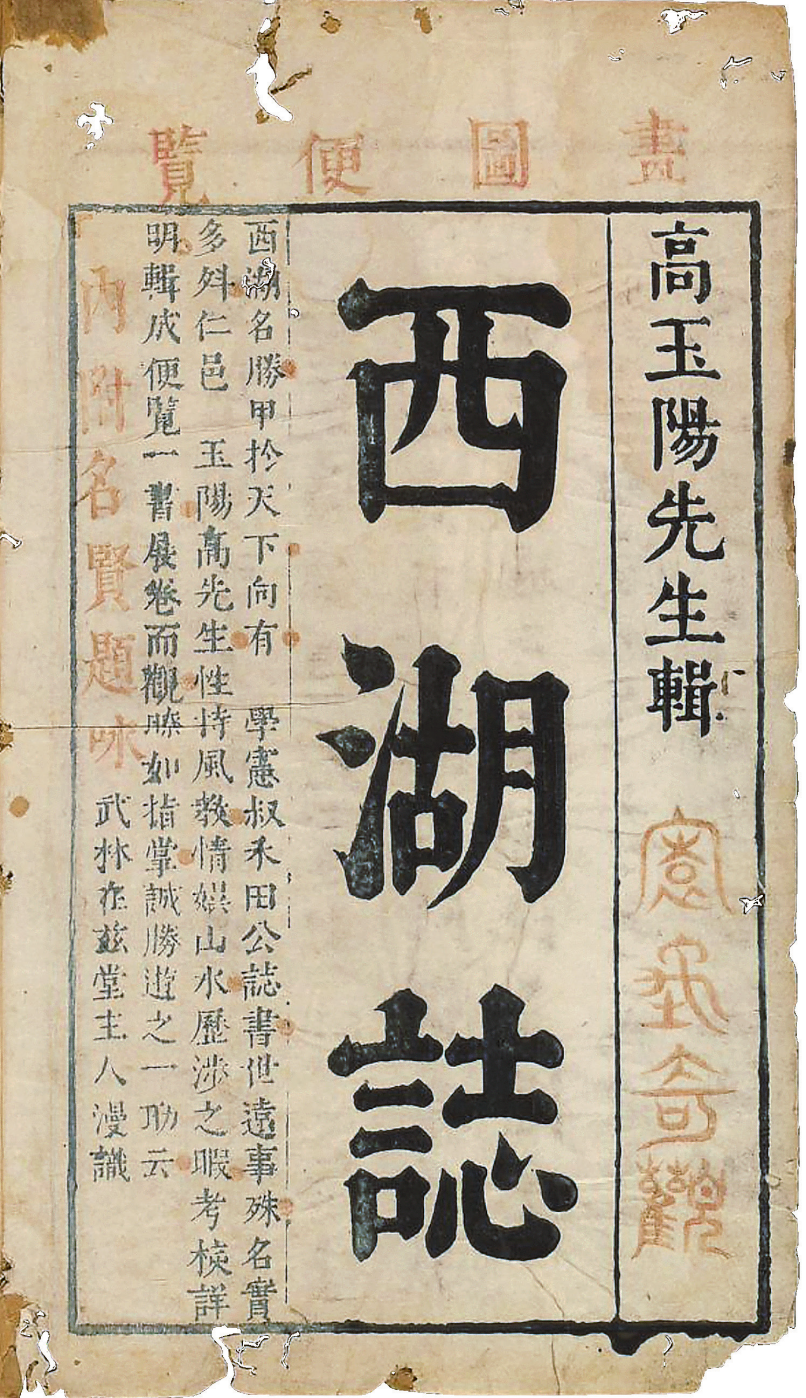 畫圖便覽
高玉陽先生輯
奇觀
西湖誌
西湖名勝甲於天下向有 學憲叔禾田公誌書世遠事殊名實
多舛仁邑 玉陽高先生性恃風教情娛山水歷涉之暇考核詳
明輯成便覽一書展卷而觀瞭如指掌誠勝遊之一助云
武林在茲堂主人漫識
內附名賢題咏